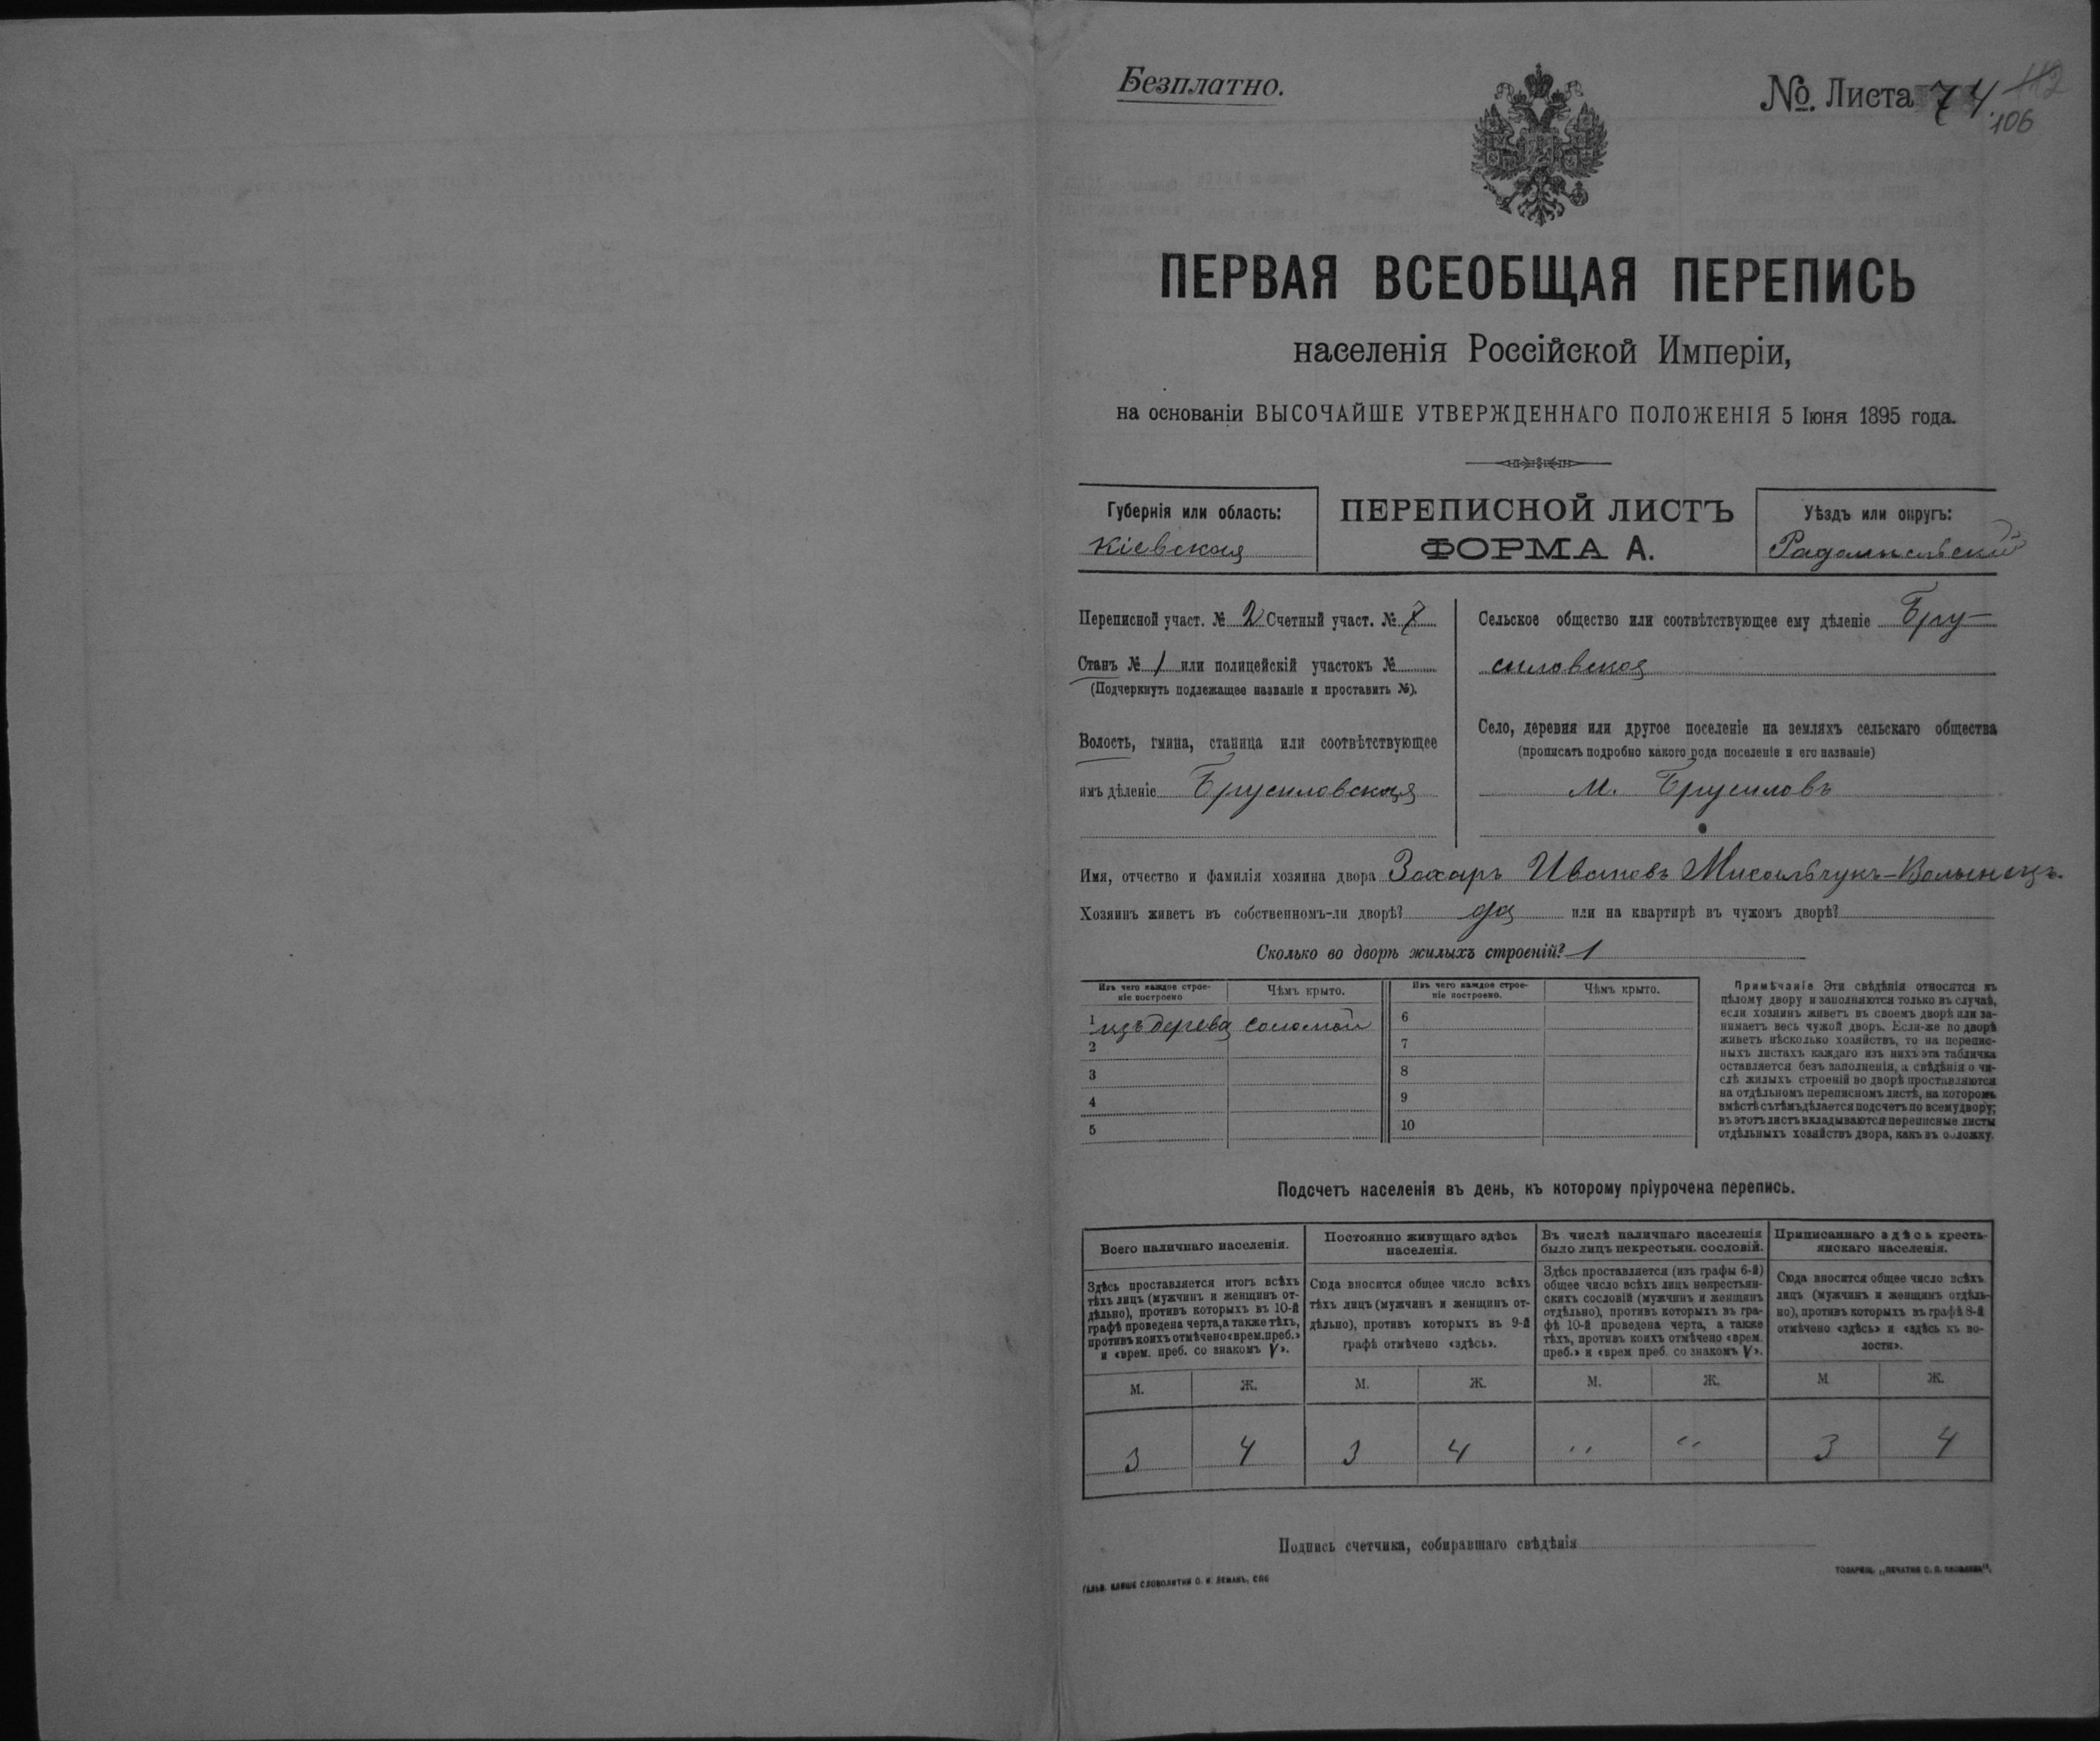 Безплатно.
№. Листа 74. 112
106
ПЕРВАЯ ВСЕОБЩАЯ ПЕРЕПИСЬ
населенія Россійской Имперіи,
на основаніи ВЫСОЧАЙШЕ УТВЕРЖДЕННАГО ПОЛОЖЕНІЯ 5 Іюня 1895 года.
Губернія или область:
Кіевская
ПЕРЕПИСНОЙ ЛИСТЪ
ФОРМА А.
Уѣздъ или округъ:
Радомысльскій
Переписной участ. № 2 Счетный участ. № 7
Станъ № 1 или полицейскій участокъ №
(Подчеркнуть подлежащее названіе и проставить №).
Волость, гмина, станица или соотвѣтствующее
имъ дѣленіе Брусиловская
Сельское общество или соотвѣтствующее ему дѣленіе Бру-
силовская
Село, деревня или другое поселеніе на земляхъ сельскаго общества
(прописать подробно какого рода поселеніе и его названіе)
м. Брусиловъ
Имя, отчество и фамилія хозяина двора Захаръ Ивановъ Мисальчукъ-Волынецъ.
Хозяинъ живетъ въ собственномъ-ли дворѣ? да или на квартирѣ въ чужомъ дворѣ?
Сколько во дворѣ жилыхъ строеній? 1
Изъ чего каждое строе-
ніе построено
Чѣмъ крыто.
Изъ чего каждое строе-
ніе построено.
Чѣмъ крыто.
1 изъ дерева соломой
2
3
4
5
6
7
8
9
10
Примѣчаніе Эти свѣдѣнія относятся къ
цѣлому двору и заполняются только въ случаѣ,
если хозяинъ живетъ въ своемъ дворѣ или за-
нимаетъ весь чужой дворъ. Если-же во дворѣ
живетъ нѣсколько хозяйствъ, то на перепис-
ныхъ листахъ каждаго изъ нихъ эта табличка
оставляется безъ заполненія, а свѣдѣнія о чи-
слѣ жилыхъ строеній во дворѣ проставляются
на отдѣльномъ переписномъ листѣ, на которомъ
вмѣстѣ съ тѣмъ дѣлается подсчетъ по всему двору;
въ этотъ листъ вкладываются переписные листы
отдѣльныхъ хозяйствъ двора, какъ въ обложку.
Подсчетъ населенія въ день, къ которому пріурочена перепись.
Всего наличнаго населенія.
Постоянно живущаго здѣсь
населенія.
Въ числѣ наличнаго населенія
было лицъ некрестьян. сословій.
Приписаннаго здѣсь кресть-
янскаго населенія.
Здѣсь проставляется итогъ всѣхъ
тѣхъ лицъ (мужчинъ и женщинъ от-
дѣльно), противъ которыхъ въ 10-й
графѣ проведена черта, а также тѣхъ,
противъ коихъ отмѣчено «врем. преб.»
и «врем. преб. со знакомъ V».
Сюда вносится общее число всѣхъ
тѣхъ лицъ (мужчинъ и женщинъ от-
дѣльно), противъ которыхъ въ 9-й
графѣ отмѣчено «здѣсь».
Здѣсь проставляется (изъ графы 6-й)
общее число всѣхъ лицъ некрестьян-
скихъ сословій (мужчинъ и женщинъ
отдѣльно), противъ которыхъ въ гра-
фѣ 10-й проведена черта, а также
тѣхъ, противъ коихъ отмѣчено «врем.
преб.» и «врем преб. со знакомъ V».
Сюда вносится общее число всѣхъ
лицъ (мужчинъ и женщинъ отдѣль-
но), противъ которыхъ въ графѣ 8-й
отмѣчено «здѣсь» и «здѣсь къ во-
лости».
М. Ж. М. Ж. М. Ж. М Ж.
3 4 3 4 " " 3 4
Подпись счетчика, собиравшаго свѣдѣнія
ГАЛЬВ. КЛИШЕ СЛОВОЛИТНИ О. И. ЛЕМАНЪ, СПБ
ТОВАРИЩ. „ПЕЧАТНЯ С. П. ЯКОВЛЕВА".